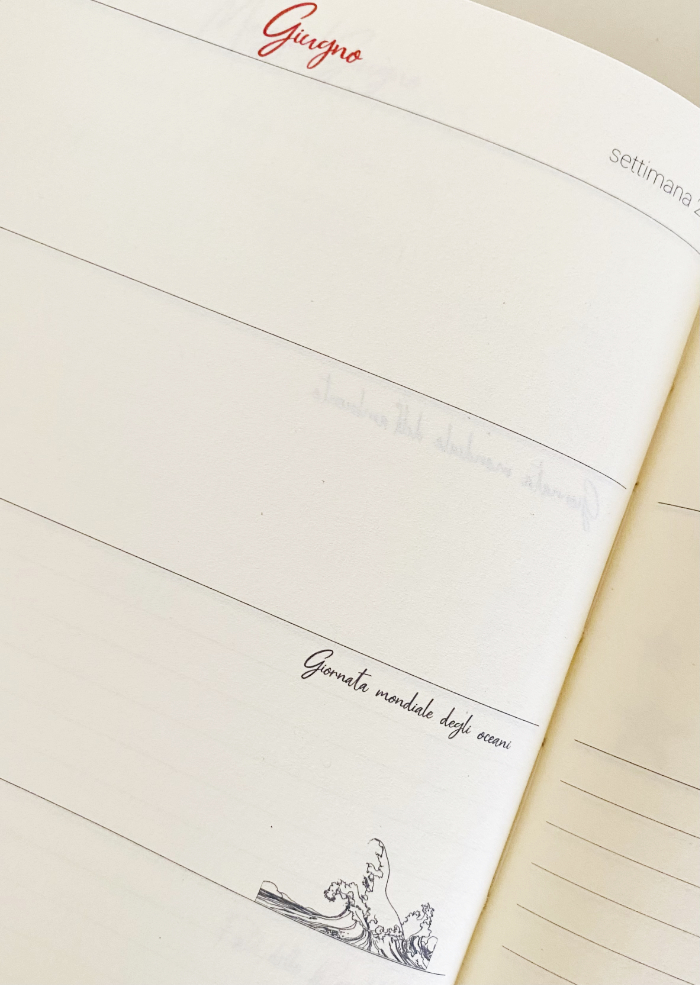 Giugno
settimana 2
Giornata mondiale degli oceani